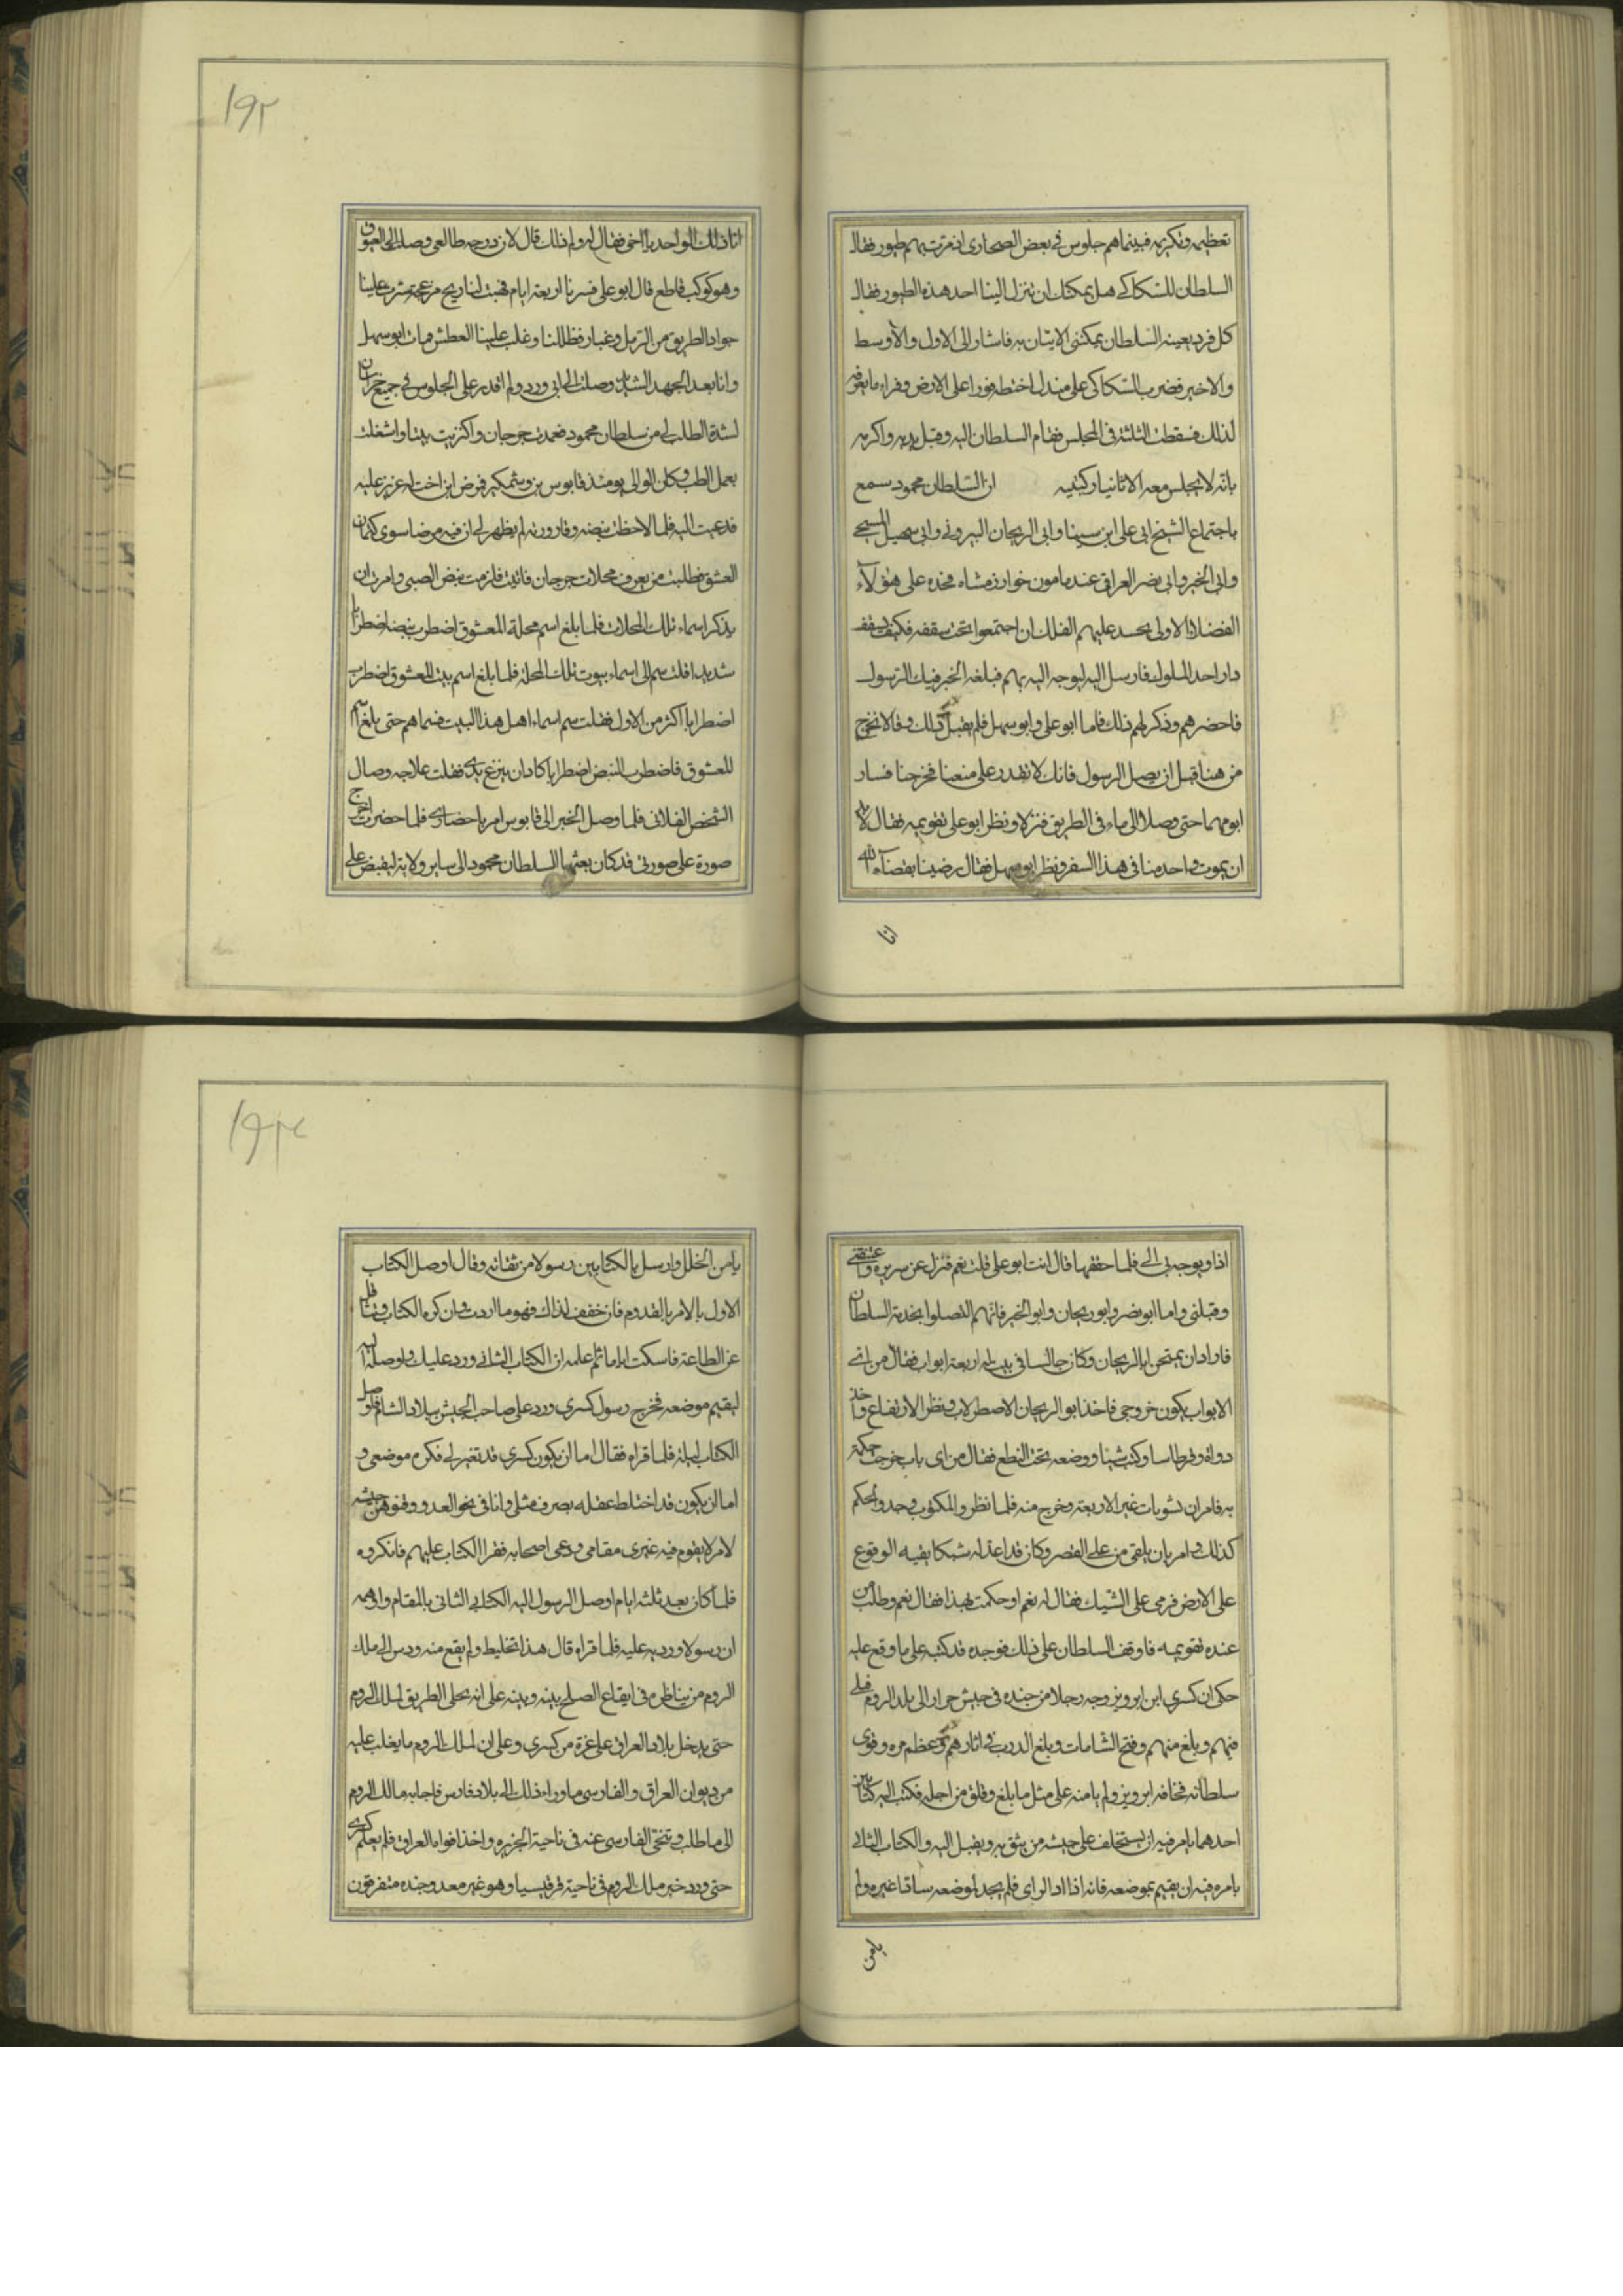 تعظيمه وتكريمه فبينما هم جلوس في بعض الصحاري اذ مرت بهم طيور فقال
السلطان للسكاكي هل يمكنك ان ينزل الينا احد هذه الطيور فقال
كل فرد يعينه السلطان يمكنني الاتيان به فاشار الى الاول والاوسط
والاخير فضرب السكاكي على مندل اختطه فورا على الارض وقراء ما يعرفه
لذلك فسقطت الثلثة في المجلس فقام السلطان اليه وقبل يديه واكرمه
بانه لا يجلس معه الا ثانيا ركبتيه ان السلطان محمود سمع
باجتماع الشيخ ابي علي ابن سينا وابي الريحان البيروني وابي سهيل المسيحي
وابي الخير وابي نصر العراقي عند مامون خوارزمشاه فحده على هؤلآء
الفضلا الاولى يحسد عليهم الفلك ان اجتمعوا تحت سقفه فكيف بسقف
دار احد الملوك فارسل اليه ليوجه اليه بهم فبلغه الخبر قبل الرسول
فاحضرهم وذكر لهم ذلك فاما ابو علي وابو سهل فلم يقبل ذلك وقالا نخرج
من هنا قبل ان يصل الرسول فانك لا تقدر على منعنا فخرجنا فسار
ابو مهما حتى وصلا الى ماء في الطريق فنزلا ونظر ابو علي تقويمه فقال لا بد
ان يموت واحد منا في هذا السفر ونظر ابو سهل فقال رضينا بقضآء الله
انا
١٩٢
انا ذلك الواحد يا اخي فقال له ولم ذلك قال لان درجه طالعي وصلت الى العيوق
وهو كوكب قاطع قال ابو علي فسرنا اربعة ايام فهبت لنا ريح مزعجة سترت علينا
جواد الطريق من الرمل وغبار فظللنا وغلب علينا العطش ومات ابو سهل
وانا بعد الجهد الشديد وصلت الى ابي ورد ولم اقدر على الجلوس في جميع خراسان
لشدة الطلب لي من سلطان محمود فعمدت جرجان واكتريت بيتا واشغلت
بعمل الطب وكان الوالي يومئذ قابوس بن وشمكير فمرض ابن اخت له عزيز عليه
فدعيت اليه فلما لاحظت نبضه وقارورته لم يظهر لي ان فيه مرضا سوى كتمان
العشق فطلبت من يعرف محلات جرجان فاتيت فلزمت نبض الصبي وامرت ان
يذكر اسماء تلك المحلات فلما بلغ اسم محلة المعشوق اضطرب نبضه اضطرابا
شديدا قلت سم الى اسماء بيوت تلك المحلة فلما بلغ اسم بيت المعشوق اضطرب
اضطرابا اكثر من الاول فقلت سم اسماء اهل هذا البيت فسماهم حتى بلغ اسم
المعشوق فاضطرب النبض اضطرابا كاد ان ينزع يدي فقلت علاجه وصال
الشخص الفلاني فلما وصل الخبر الى قابوس امر باحضاري فلما حضرت اخرج
صورة على صورتي قد كان بعثها السلطان محمود الى ساير ولاية ليقبض علي
اذا ويوجه بي الى فلما حققها قال انت ابو علي قلت نعم فنزل عن سريره واعتنقني
وقبلني واما ابو نصر وابو ريحان وابو الخير فانهم اتصلوا بخدمة السلطان
فاراد ان يمتحن ابا الريحان وكان جالسا في بيت له اربعة ابواب فقال من اي
الابواب يكون خروجي فاخذ ابو الريحان الاصطرلاب ونظر الارتفاع واخذ
دواة وقرطاسا وكتب شيئا ووضعه تحت النطع فقال من اي باب خروجي حكمت
به فامر ان تشوبات غير الاربعة وخرج منه فلما نظروا المكتوب وجدوا لحكم
كذلك وامر بان يلقى من على القصر وكان قد اعد له شبكا يقيه الوقوع
على الارض فرمي على الشبك فقال له نعم او حكمت بهذا فقال نعم وطلب من
عنده تقويمه فاوقف السلطان على ذلك فوجده قد كتب على ما وقع عليه
حكى ان كسرى ابن ابرويز وجه رجلا من جنده في جيش جرار الى بلد الروم
فيهم وبلغ منهم وفتح الشامات وبلغ الدرب في اثارهم وعظم امره وقوي
سلطانه فخافه ابرويز ولم يامنه على مثل ما بلغ وقلق من اجله فكتب اليه كتابين
احدهما يامر فيه ان يستخلف على جيشه من يثق به ويقبل اليه والكتاب الثاني
يامره فيه ان يقيم بموضعه فانه اذا ادار الراي فلم يجد لموضعه سادا غيره ولم
يامن
يامن الخلل وارسل بالكتابين رسولا من ثقاته وقال اوصل الكتاب
الاول بالامر بالقدوم فان خفف لذلك فهو ما اردت وان كره الكتاب وتثاقل
عن الطاعة فاسكت اياما ثم علمه ان الكتاب الثاني ورد عليك واوصله اليه
ليقيم موضعه فخرج رسول كسرى ورد على صاحب الجيش ببلاد الشام فاوصل
الكتاب اليه فلما قراه فقال اما ان يكون كسرى قد تغير لي فكره موضعي و
اما ان يكون قد اختلط عقله بصرف مثلي وانا في نحو العدو
لامر لا يقوم فيه غيري مقامي ودعى اصحابه فقرا الكتاب عليهم فانكروه
فلما كان بعد ثلثة ايام اوصل الرسول اليه الكتاب الثاني بالمقام واوهمه
ان رسولا ورد به عليه فلما قراه قال هذا تخليط ولم يقع منه ودس الى ملك
الروم من يناظره في ايقاع الصلح بينه وبينه على انه يخلي الطريق لملك الروم
حتى يدخل بلاد العراق على غرة من كسرى وعلى ان لملك الروم ما يغلب عليه
من ديوان العراق والفارسي ما وراء ذلك الى بلاد فارس فاجابه مالك الروم
الى ما طلب وتنحى الفارسي عنه في ناحية الجزيره واخذ افواه العراق فلم يعلم كسرى
حتى ورد خبر ملك الروم في ناحية قرقيسيا وهو غير معد وجنده متفرقون